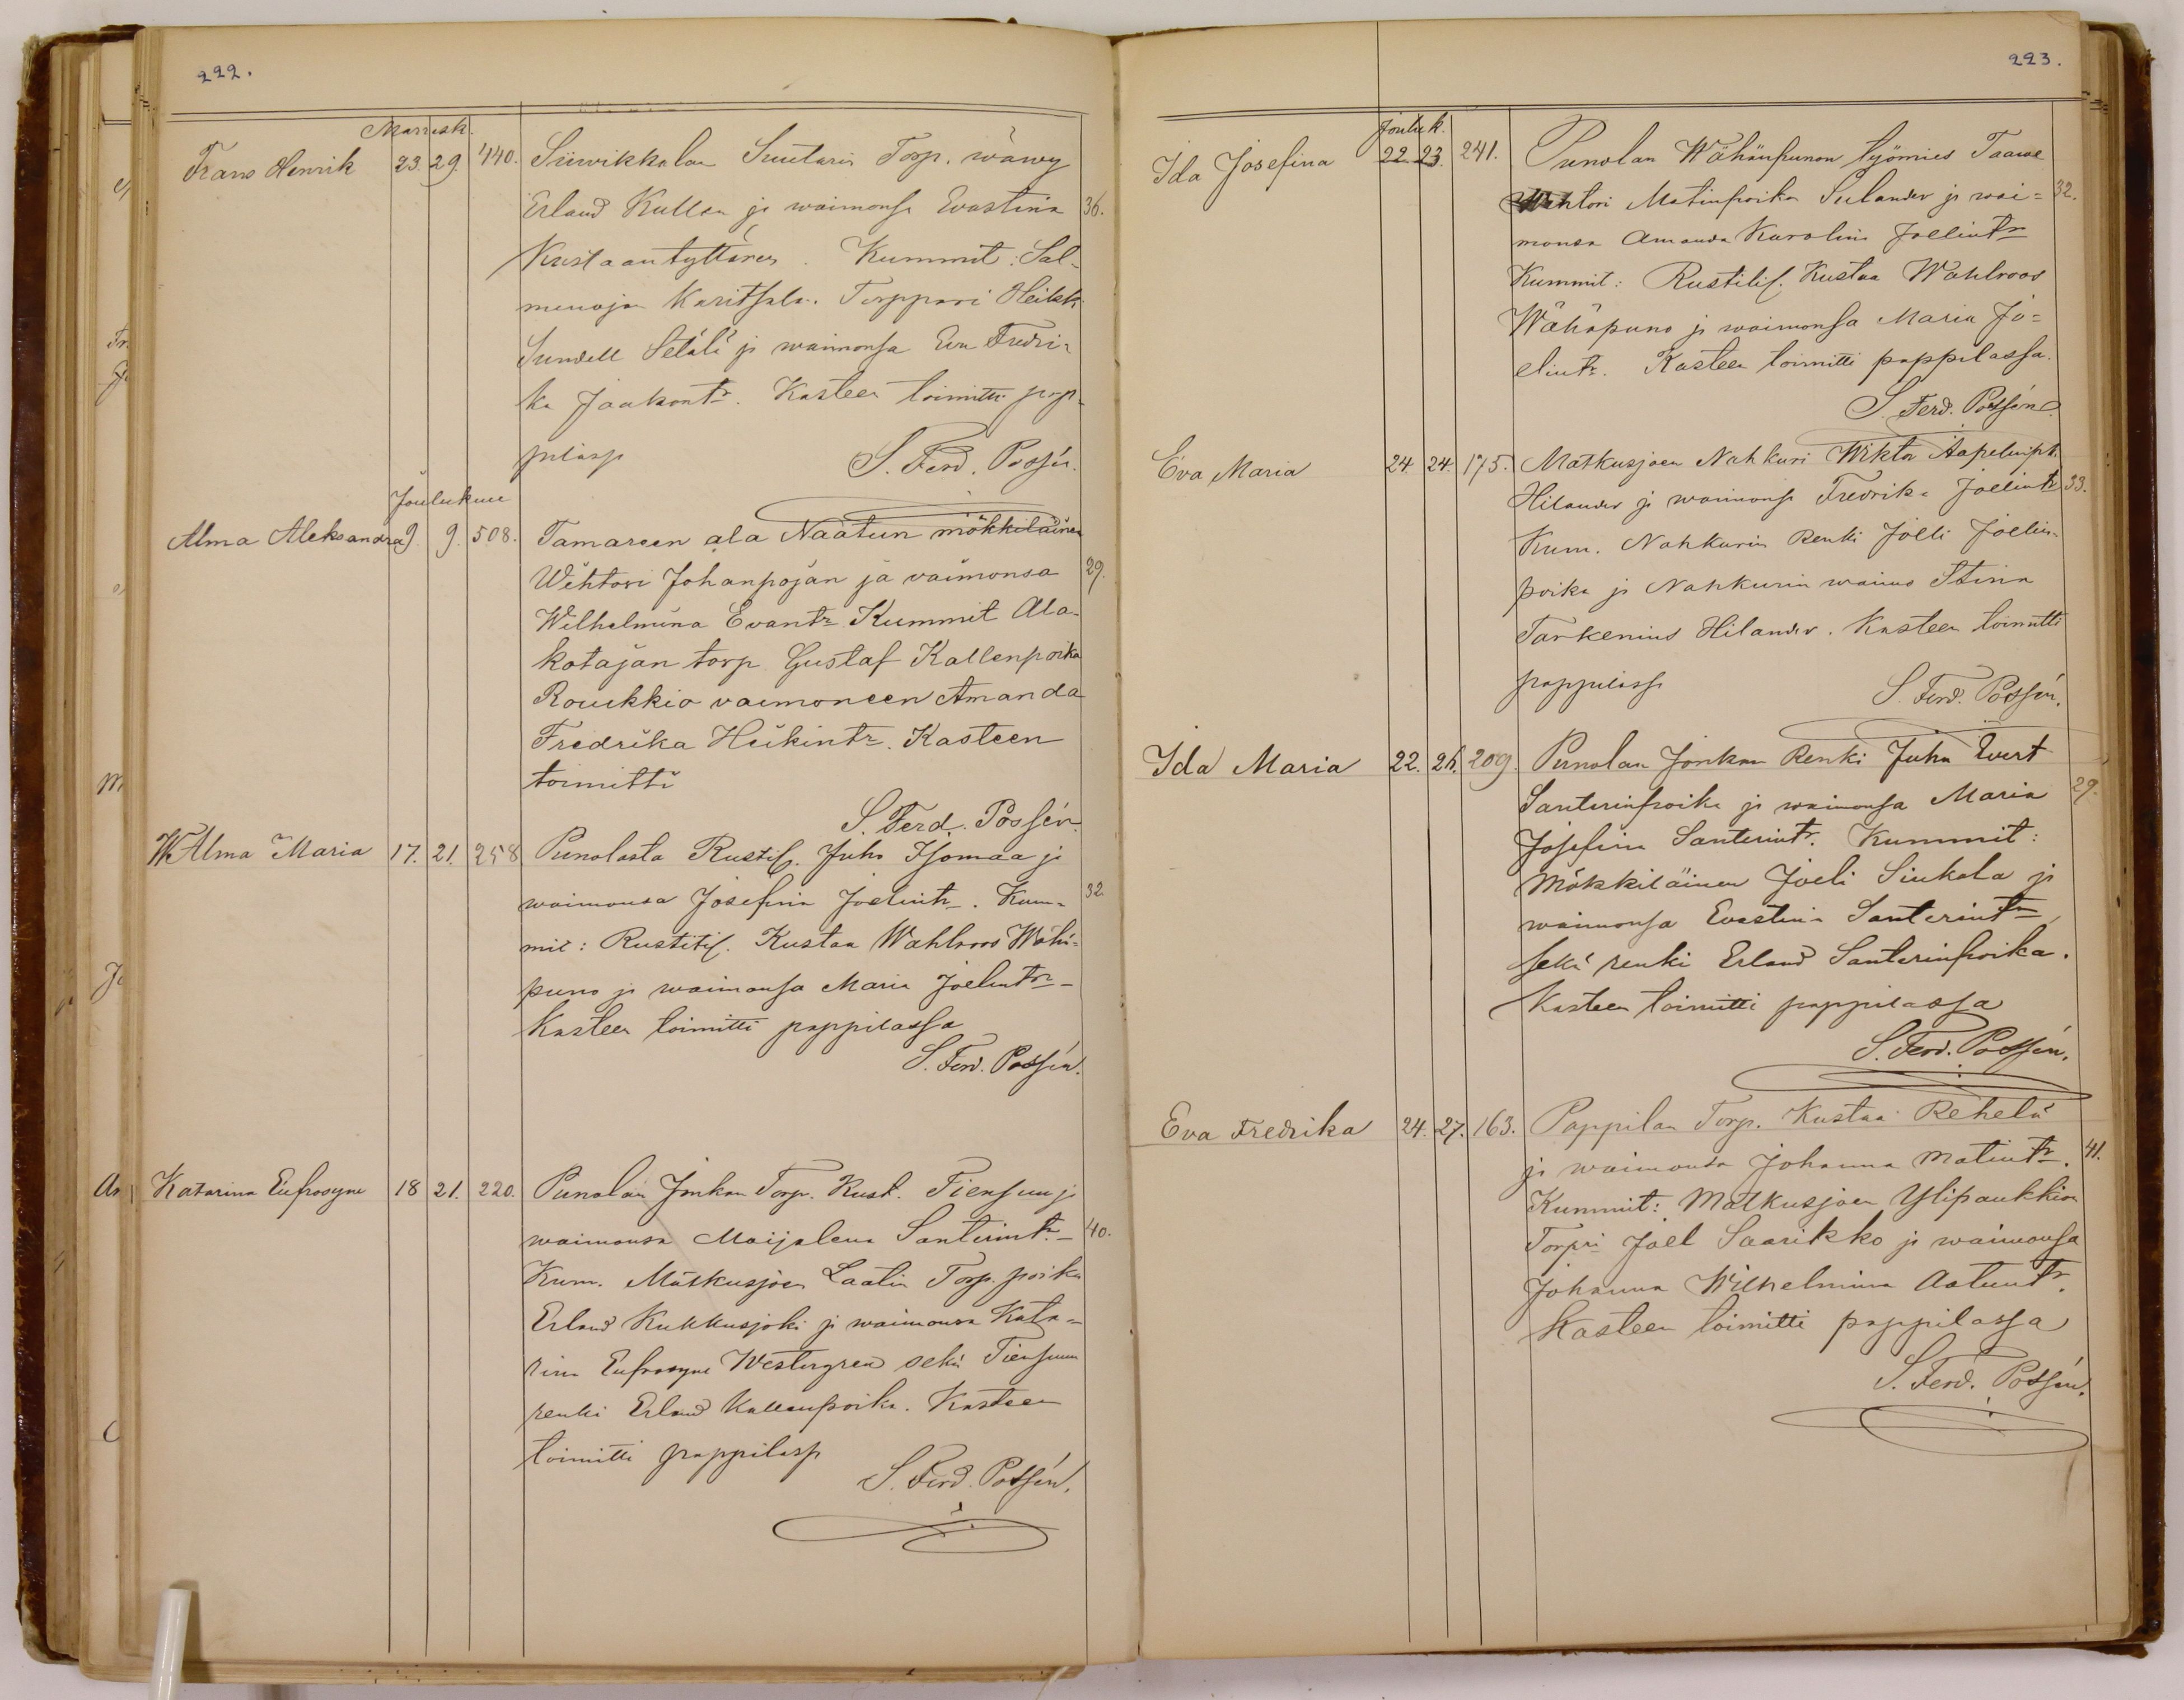 222.
Marrask.
Frans Henrik 23. 29. 440. Siiwikkalan Suutarin Torp. wäwy
Erland Kullan ja waimonsa Evastina 36.
Kustaantyttären. Kummit: Sal-
menojan Karitsala. Torppari Heikk
Sundell Setälä ja waimonsa Eva Fredri-
ka Jaakontr. Kasteen toimitti pap-
pilassa S. Ferd. Possén.
Joulukuu
Alma Aleksandra 9. 9. 508. Tamareen ala Näätun mökkiläinen
Wihtori Johanpojan ja vaimonsa 29.
Wilhelmina Evantr. Kummit Ala-
kotajan torp. Gustaf Kallenpoika
Roukkio vaimoneen Amanda
Fredrika Heikintr. Kasteen
toimitti
S. Ferd. Possén.
Alma Maria 17. 21. 258 Punolasta Rustil. Juho Isomaa ja
waimonsa Josefina Joelintr. Kum- 32
mit: Rustitil. Kustaa Wahlroos Wähä-
puno ja waimonsa Maria Joelintr.
Kasteen toimitti pappilassa
S. Ferd. Possén.
Katarina Eufrosyne 18 21. 220. Punolan Jonkan Torp. Kust. Tiensuu ja
waimonsa Maijalena Santerintr. 40.
Kum. Mätkusjoen Laalin Torp. poika
Erland Kukkusjoki ja waimonsa Kata-
rina Eufrosyne Westergren sekä Tiensuun
renki Erland Kallenpoika. Kasteen
toimitti pappilassa
S. Ferd. Possén.
223.
Jouluk.
Ida Josefina 22. 23. 241. Punolan Wähänpunon työmies Taawe
Wihtori Matinpoika Sulander ja wai- 32.
monsa Amanda Karolina Joelintr.
Kummit: Rustitil. Kustaa Wahlroos
Wähäpuno ja waimonsa Maria Jo-
elintr. Kasteen toimitti pappilassa.
S. Ferd. Possén.
Eva Maria 24. 24. 175. Mätkusjoen Nahkuri Wiktor Aapelinpk.
Hilander ja waimonsa Fredrika Joelintr 33.
Kum. Nahkurin Renki Joeli Joelin-
poika ja Nahkurin waimo Stina
Tarkenius Hilander. Kasteen toimitti
pappilassa S. Ferd. Possén.
Ida Maria 22. 26. 209. Punolan Jonkan Renki Juha Evert
Santerinpoika ja waimonsa Maria 29.
Josefina Santerintr. Kummit:
Mökkiläinen Joeli Sinkala ja
waimonsa Evastina Santerintr.
sekä renki Erland Santerinpoika.
Kasteen toimitti pappilassa
S. Ferd. Possén.
Eva Fredrika 24. 27. 163. Pappilan Torp. Kustaa Rehelä
ja waimonsa Johanna Matintr. 41.
Kummit: Mätkusjoen Ylipaukkion
Torpri Joel Saarikko ja waimonsa
Johanna Wilhelmina Aatuntr.
Kasteen toimitti pappilassa
S. Ferd. Possén.